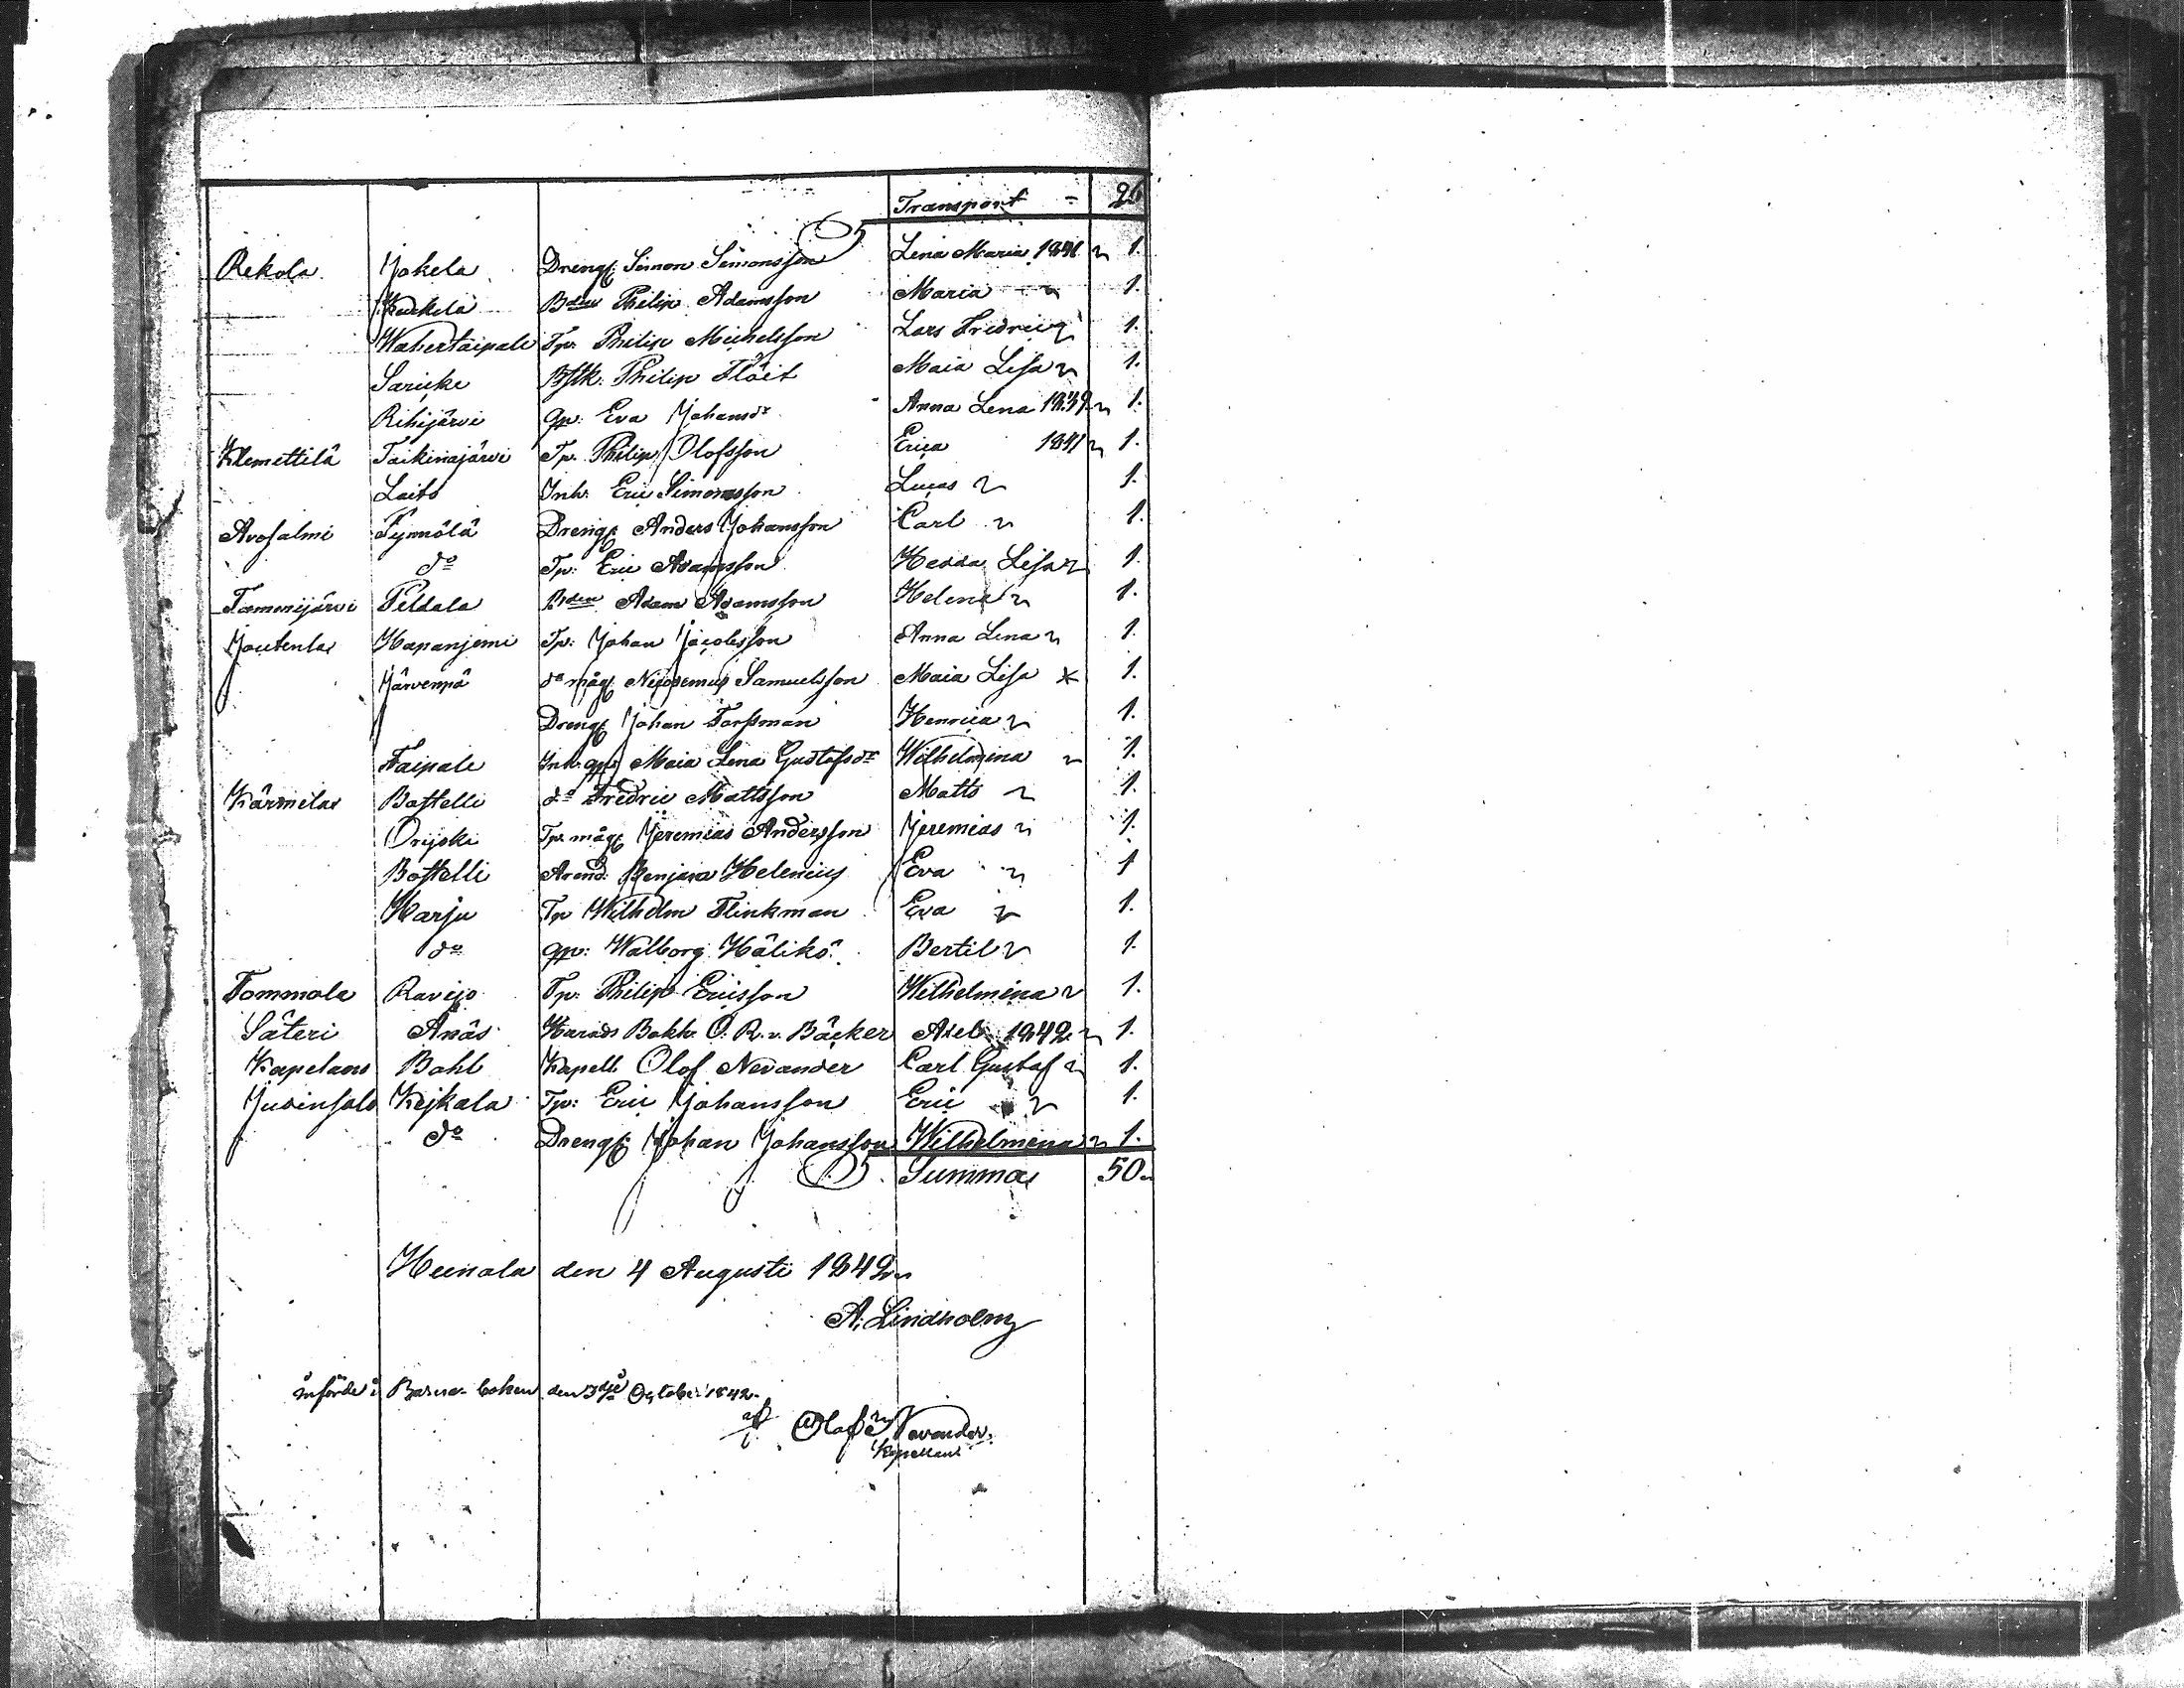 Transport - 26
Rekola Jokela Drengf Simon Simonsson Lena Maria 1841 1.
Kuckela Bden Philip Adamsson Maria 1.
Wahertaipale Tp: Philip Michelsson Lars Fredric 1.
Saricke Bstk: Philip Flöit Maia Lisa 1.
Rihijärvi qp: Eva Johansdr Anna Lena 1839 1.
Klemettilä Taikinajärvi Tp. Philip Olofsson Erica 1841 1.
Laito Inh: Eric Simonsson Lucas 1.
Avosalmi Tynnölä Drengf Anders Johansson Carl 1.
do Tp: Eric Adamsson Hedda Lisa 1.
Tammijärvi Peldala Bden Adam Adamsson Helena 1.
Joutenla Hapanjemi Tp: Johan Jacobsson Anna Lena 1.
Järvenpä do måg Nicodemus Samuelsson Maia Lisa * 1.
Drengf Johan Forssman Henrica 1.
Taipale Inh. qp: Maia Lena Gustafsdr Wilhelmina 1.
Kärmila Bostelli do Fredric Mattsson Matts 1.
Orijoki Tp. måg Jeremias Andersson Jeremias 1.
Bostelli Arend: Benjam Helenius Eva 1
Harju Tp Wilhelm Flinkman Eva 1.
do qp: Walborg Hälikö Bertil 1.
Tommola Ravijo Tp. Philip Ericsson Wilhelmina 1.
Säteri Anäs Harads Bokh. O. R. v. Bäcker Axel 1842 1.
Kapelans Bohl Kapell. Olof Nevander Carl Gustaf 1.
Juvinsalo Kejkala Tp: Eric Johansson Eric 1.
do Drengf Johan Johansson Wilhelmina 1.
Summa 50.
Heinola den 4 Augusti 1842
A. Lindholm
införde i Barna-boken den 3dje October 1842.
af Olof Nevander.
Kapellan